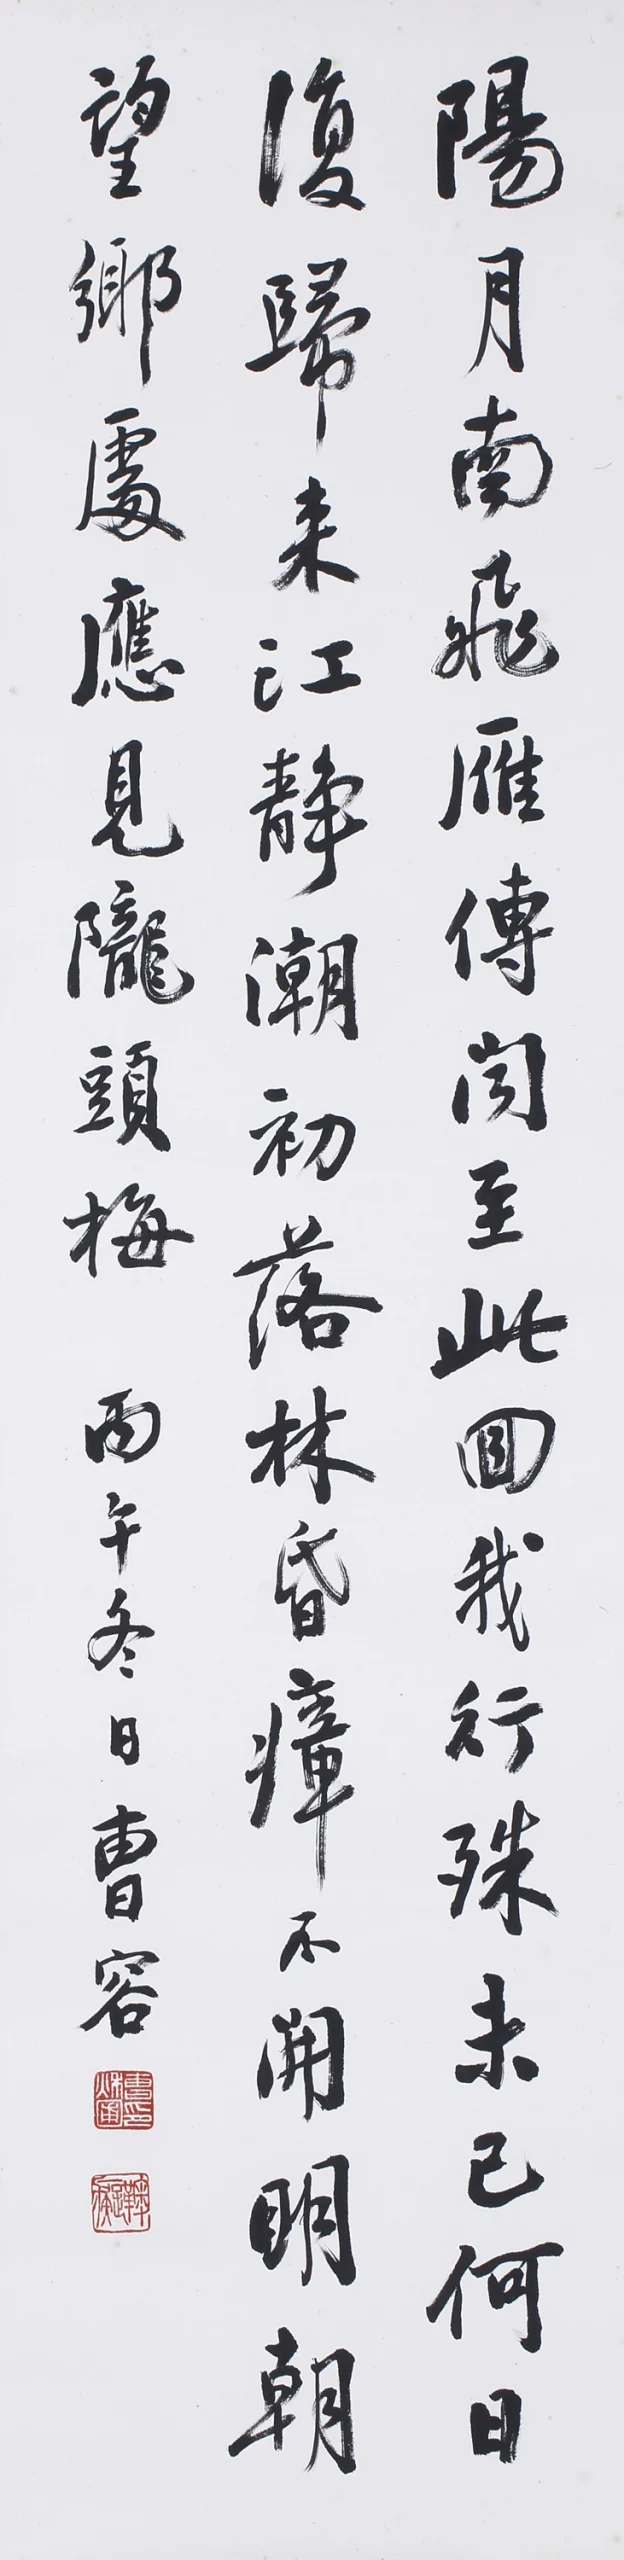 陽月南飛雁傳聞至此回我行殊未已何日
復歸来江静潮初落林昏瘴不開明朝
望鄉處應見隴頭梅
丙午冬日曹容